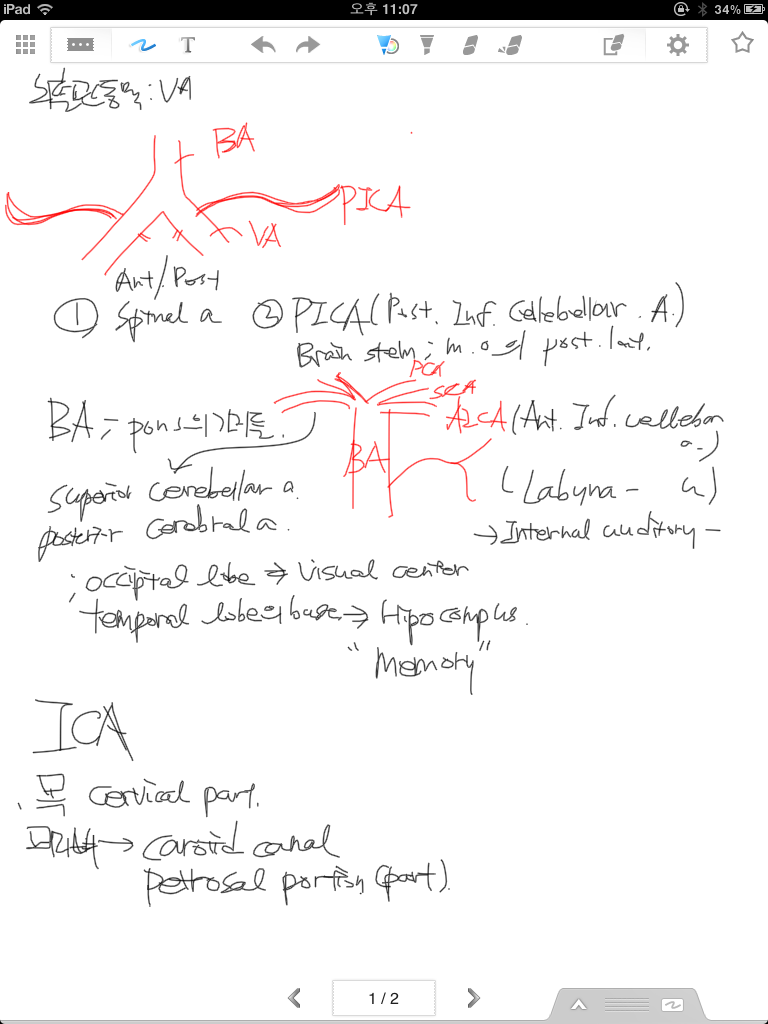 iPad 오후 11:07 34%
T
: VA
BA
PICA
VA
Ant/Post
① Spinal a ② PICA (Post. Inf. Cellebellar. A.)
Brain stem; m.o의 post. lat.
PCA
SCA
BA; pons의 기저틀. AICA (Ant. Inf. cellebar
a.)
BA
Superior Cerebellar a. (Labyna - a)
posterior Cerebral a. → Internal auditory -
; occipital lobe ⇒ Visual center
temporal lobe의 base ⇒ Hipocampus.
"Memory"
ICA
목 Cervical part.
→ Carotid canal
petrosal portion (part).
1 / 2